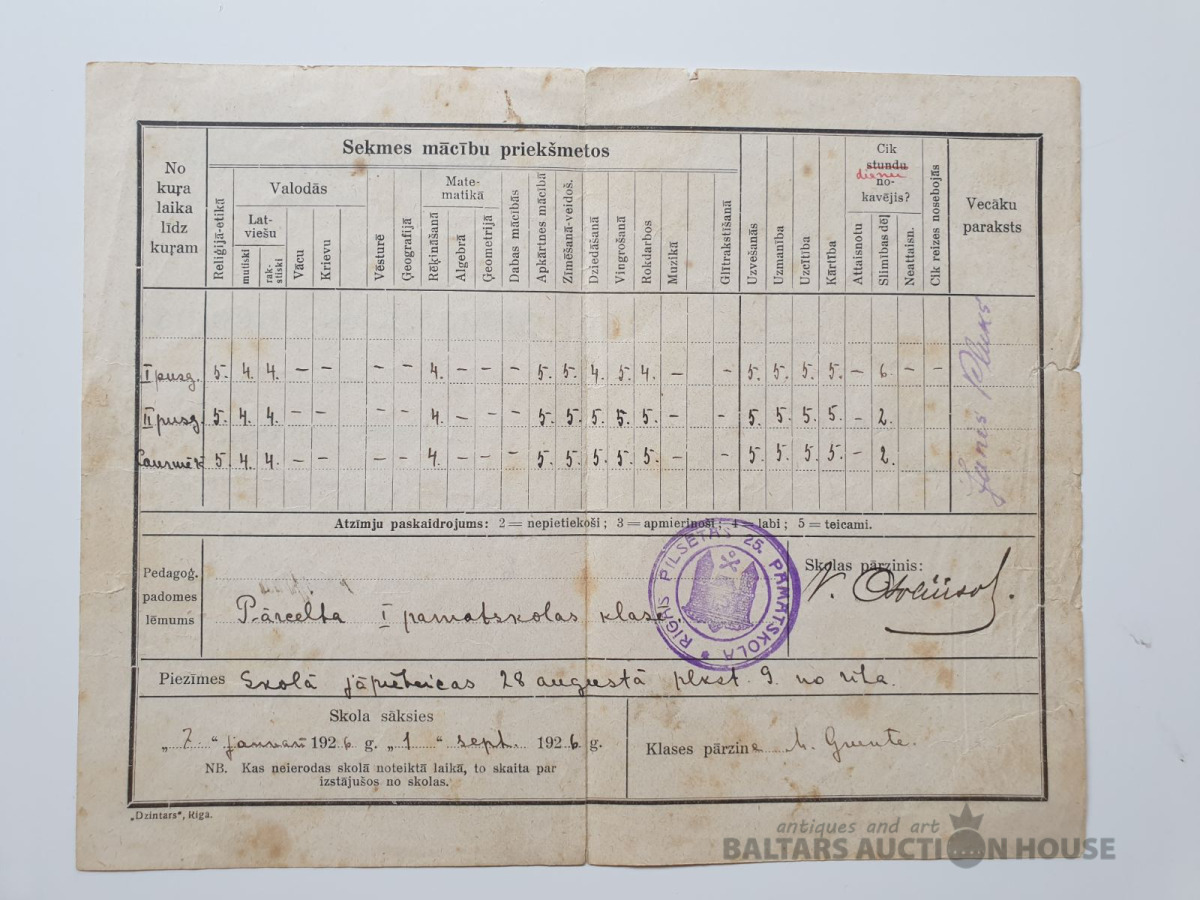 Sekmes mācību priekšmetos
No kuŗa laika līdz kuŗam
Reliģijā-etikā
Valodās
Latviešu
mutiski
rakstiski
Vācu
Krievu
Vēsturē
Ģeografijā
Matematikā
Rēķināšanā
Algebrā
Ģeometrijā
Dabas mācībās
Apkārtnes mācībā
Zīmēšanā-veidoš.
Dziedāšanā
Vingrošanā
Rokdarbos
Muzikā
Glītrakstīšanā
Uzvešanās
Uzmanība
Uzcītība
Kārtība
Cik stundu dienu nokavējis?
Attaisnotu
Slimības dēļ
Neattaisn.
Cik reizes nosebojās
Vecāku paraksts
I pusg. 5. 4. 4. – – – – 4. – – – 5. 5. 4. 5. 4. – – 5. 5. 5. 5. – 6. – –
II pusg. 5. 4. 4. – – – – 4. – – – 5. 5. 5. 5. 5. – – 5. 5. 5. 5. – 2.
Caurmēr. 5. 4. 4. – – – – 4. – – – 5. 5. 5. 5. 5. – – 5. 5. 5. 5. – 2.
Janis
Atzīmju paskaidrojums: 2 = nepietiekoši; 3 = apmierinoši; 4 = labi; 5 = teicami.
Pedagoģ. padomes lēmums
Pārcelta I pamatskolas klasē
RĪGAS PILSĒTAS 25. PAMATSKOLA
Skolas pārzinis:
Piezīmes Skolā jāpieteicas 28 augustā plkst. 9. no rīta.
Skola sāksies
„7“ janvarī 1926 g. „1“ sept. 1926. g.
NB. Kas neierodas skolā noteiktā laikā, to skaita par
izstājušos no skolas.
Klases pārzine
„Dzintars“, Rīgā.
antiques and art
BALTARS AUCTION HOUSE